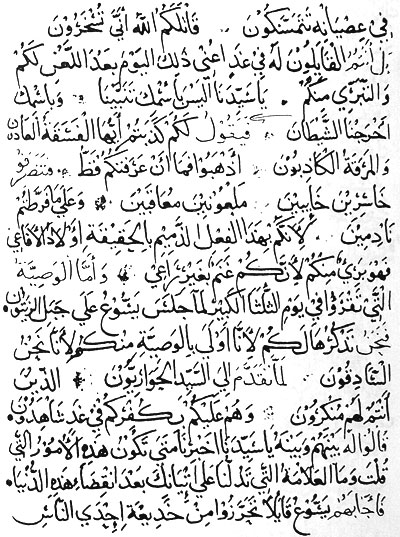 في عصيانه تتمسكون قاتلكم الله أنى تسخرون
بل أنتم القايلون له في غد اعني ذلك اليوم بعد اللعن لكم
والتبري منكم يا سيدنا اليس باسمك تنبينا وباسمك
اخرجنا الشيطان فيقول لكم كذبتم أيها الفسقة
والمرقة الكاذبون أذهبوا فما أن عرفتكم قط
خاسرين خايبين ملعونين معاقبين وعلي ما فرطتم
نادمين لانكم بهذا الفعل الذميم بالحقيقة أولاد الافاعي
فهو بري منكم لأنكم غنم لغير راعي وأما الوصية
التي تقروا في يوم الثلثا الكبير لما جلس يسوع علي جبل الزيتون
فنحن نذكرها لكم لاننا أولي بالوصية منكم لأننا نحن
الصادقون لما تقدم الي السيد الحواريون الذين
أنتم لهم منكرون وهم عليكم بكفركم في غد شاهدون
قالوا له بينهم وبينه يا سيدنا اخبرنا متى تكون هذه الأمور التي
قلت وما العلامة التي تدلنا علي اتيانك بعد انقضاء هذه الدنيا
فأجابهم يسوع قايلا تحرزوا من خديعة احدي الناس